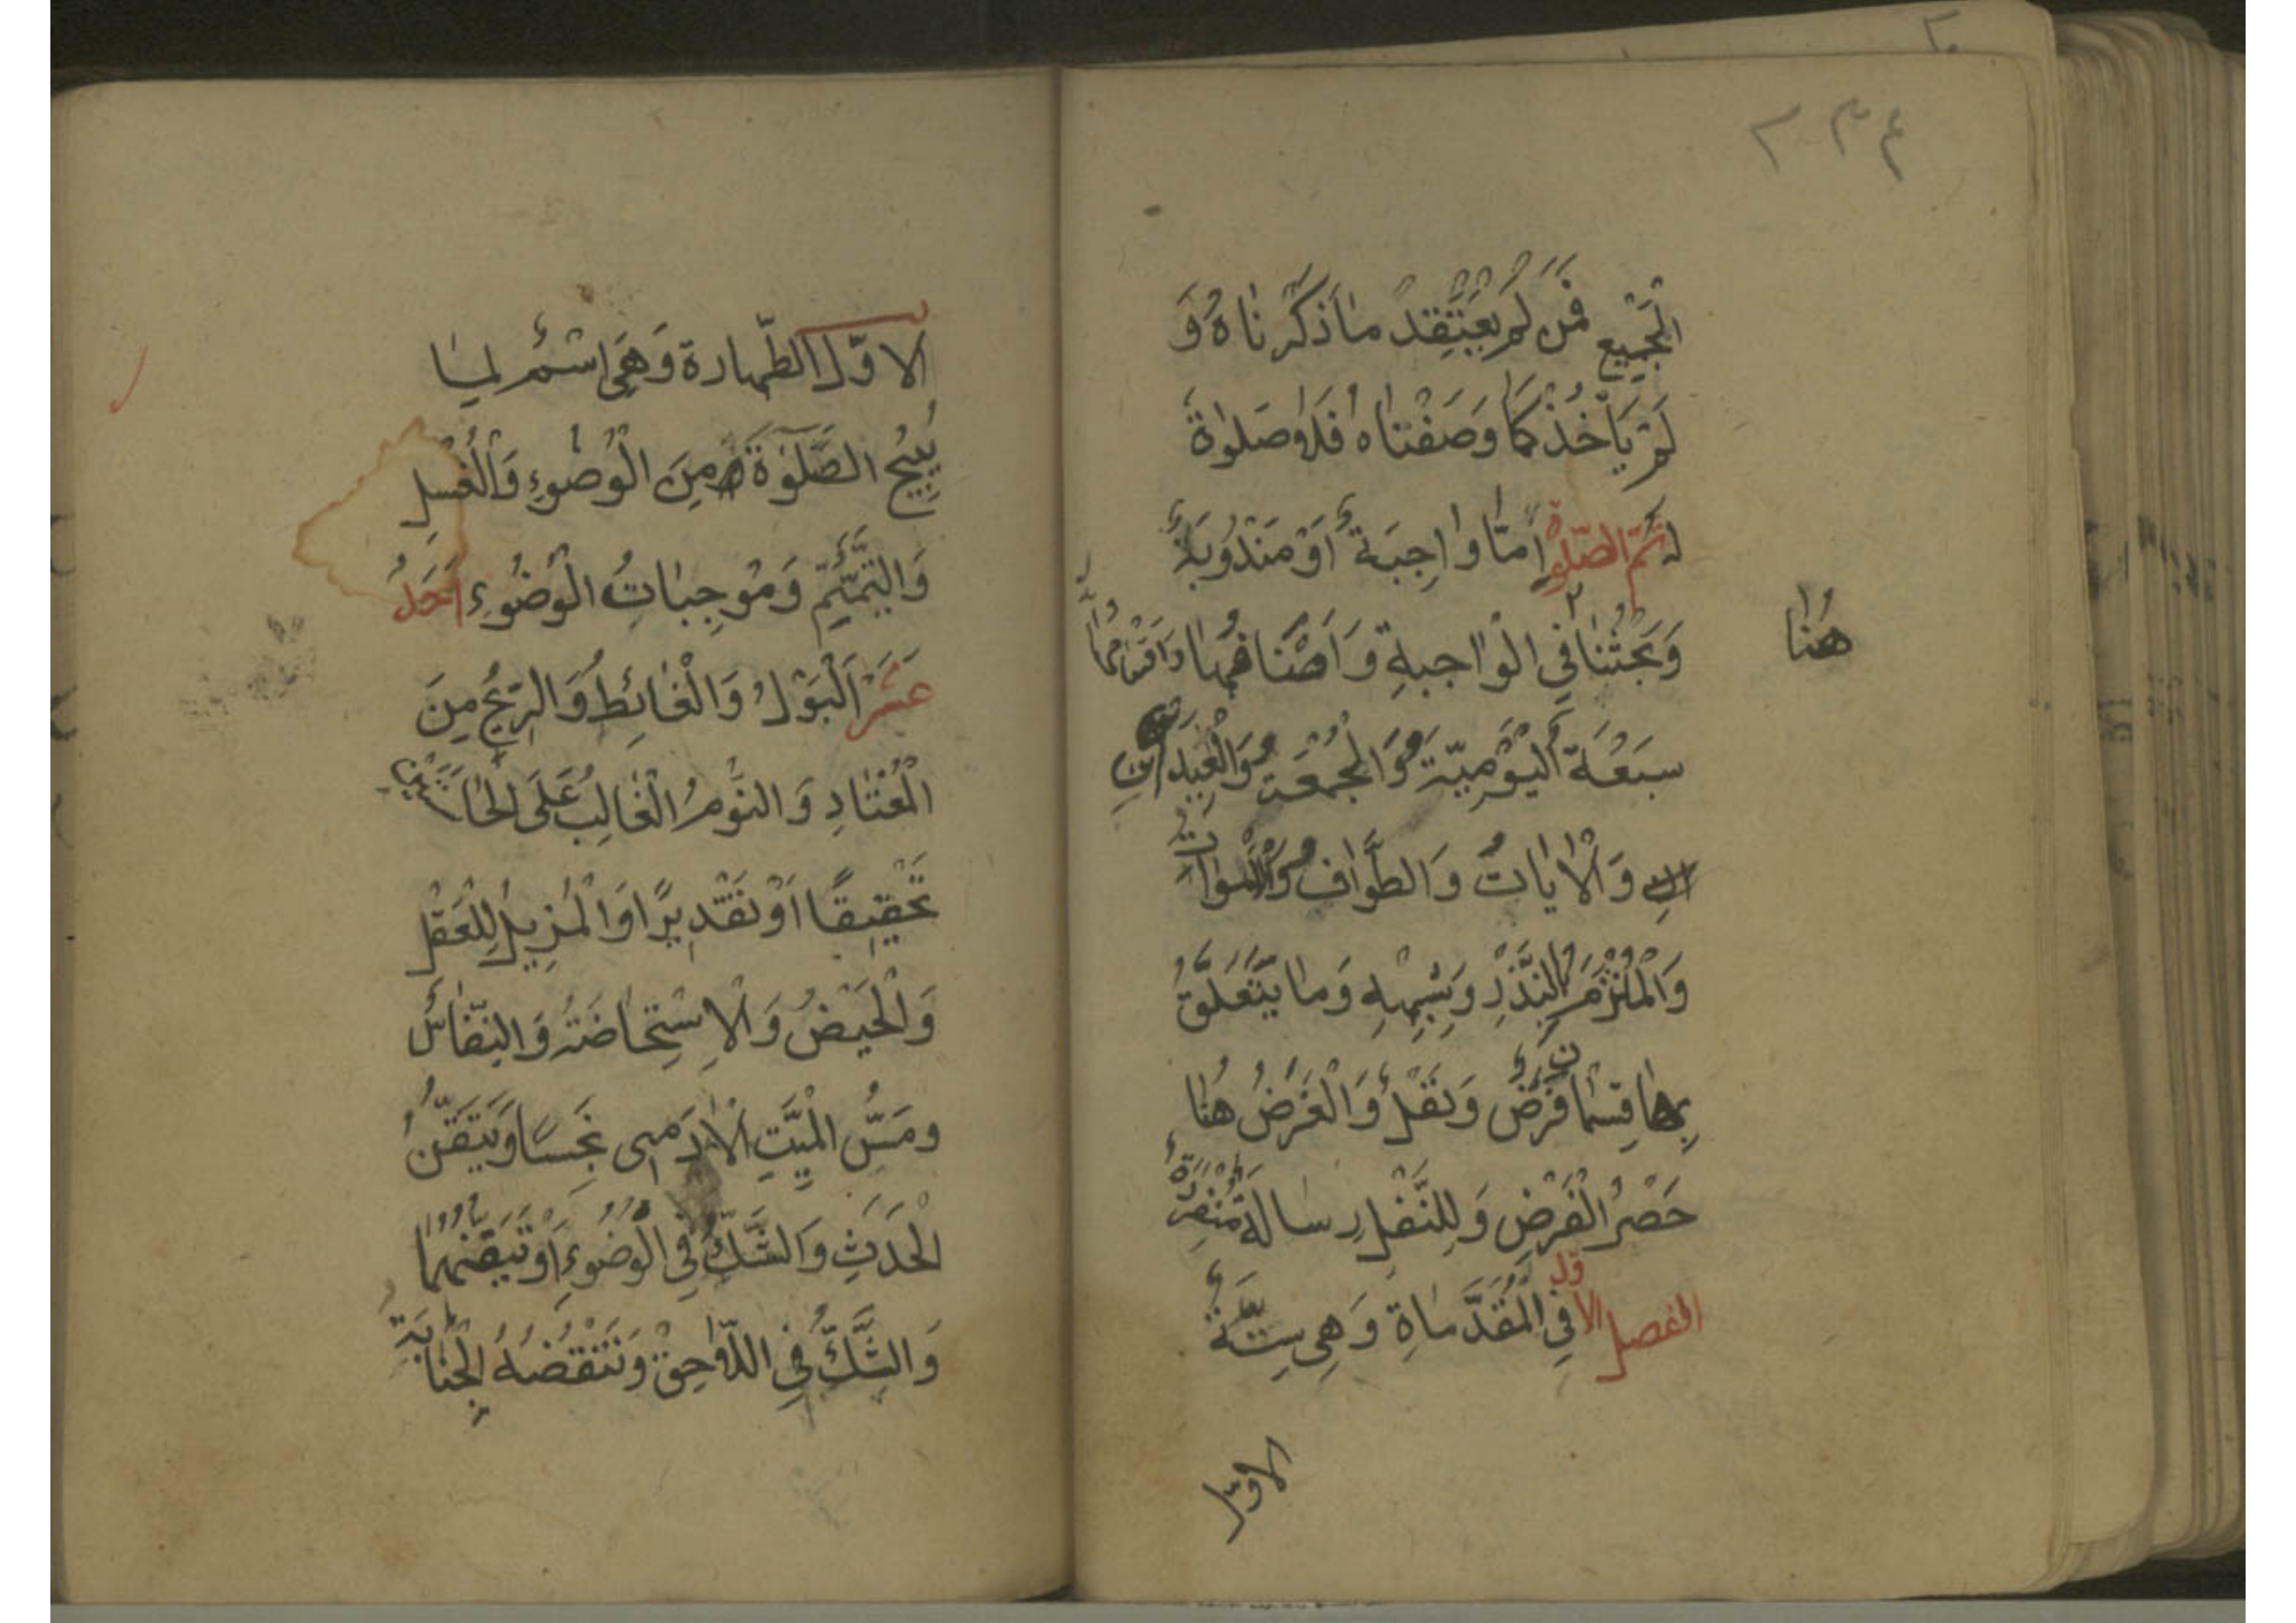 ٢٣٤
الْجَمِيعِ فَمَنْ لَمْ يَعْتَقِدْ مَا ذَكَرْنَاهُ وَ
لَمْ يَأْخُذْ كَمَا وَصَفْنَاهُ فَلَا صَلٰوةَ
لهُ ثُمَّ الصَّلٰوةُ اَمَّا وَاجِبَةٌ اَوْ مَنْدُوبَةٌ
وَبَحْثُنَا فِي الْوَاجِبَةِ وَاَصْنَافُهَا وَاَقْسَامُهَا
هُنَا
سَبْعَةٌ اَلْيَوْمِيَّةُ وَالْجُمْعَةُ وَالْعِيدَانِ
وَالْاٰيَاتُ وَالطَّوَافُ وَالْاَمْوَاتُ
وَالْمُلْتَزَمُ بِالنَّذْرِ وَشِبْهِهِ وَمَا يَتَعَلَّقُ
بِهَا قِسْمَانِ فَرْضٌ وَنَفْلٌ وَالْغَرَضُ هُنَا
حَصْرُ الْفَرْضِ وَلِلنَّفْلِ رِسَالَةٌ مُنْفَرِدَةٌ
الفصل الاول فِي الْمُقَدَّمَاةِ وَهِيَ سِتَّةٌ
الاوّل
الاوّل الطَّهارة وَهِيَ اسْمٌ لِمَا
يُبِيحُ الصَّلٰوةَ مِنَ الْوُضُوءِ وَالْغُسْلِ
وَالتَّيَمُّمِ وَمُوجِبَاتُ الْوُضُوءِ اَحَدَ
عَشَرَ اَلْبَوْلُ وَالْغَائِطُ وَالرِّيحُ مِنَ
الْمُعْتَادِ وَالنَّوْمُ الْغَالِبُ عَلَى الْحَاسَّتَيْنِ
تَحْقِيقًا اَوْ تَقْدِيرًا وَالْمُزِيلُ لِلْعَقْلِ
وَالْحَيْضُ وَالْاِسْتِحَاضَةُ وَالنِّفَاسُ
وَمَسُّ الْمَيِّتِ الْاٰدَمِى نَجِسًا وَتَيَقُّنُ
الْحَدَثِ وَالشَّكُّ فِي الْوُضُوءِ اَوْ تَيَقُّنُهُمَا
وَالشَّكُّ فِي اللَّاحِقِ وَتَنْقُضُهُ الْجَنَابَةُ